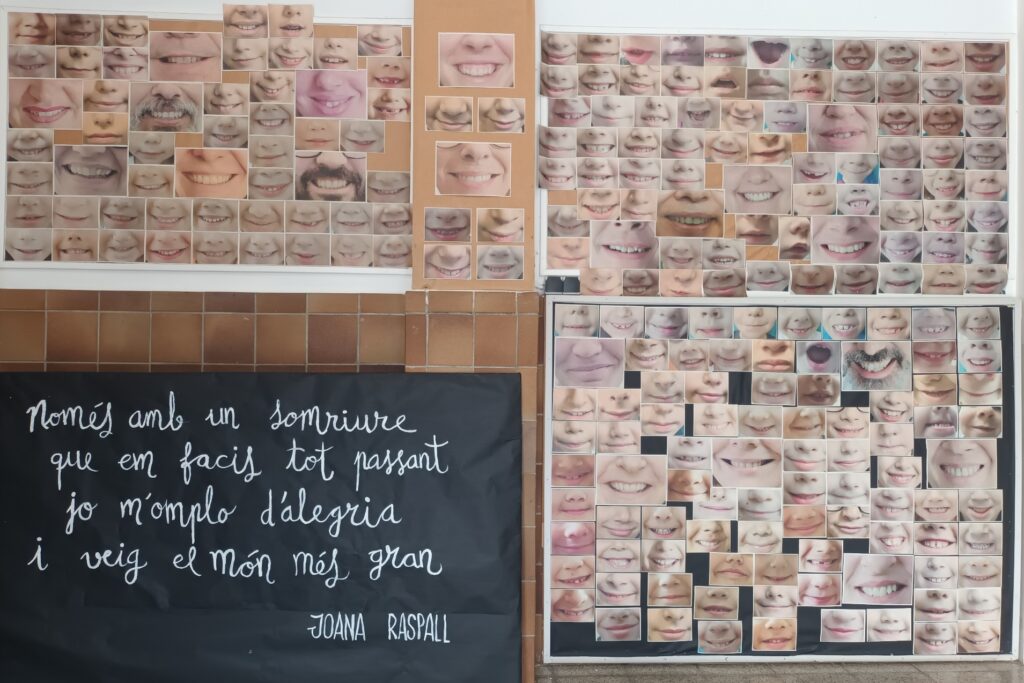 només amb un somriure
que em facis tot passant
jo m'omplo d'álegria
i veig el món més gran
JOANA RASPALL